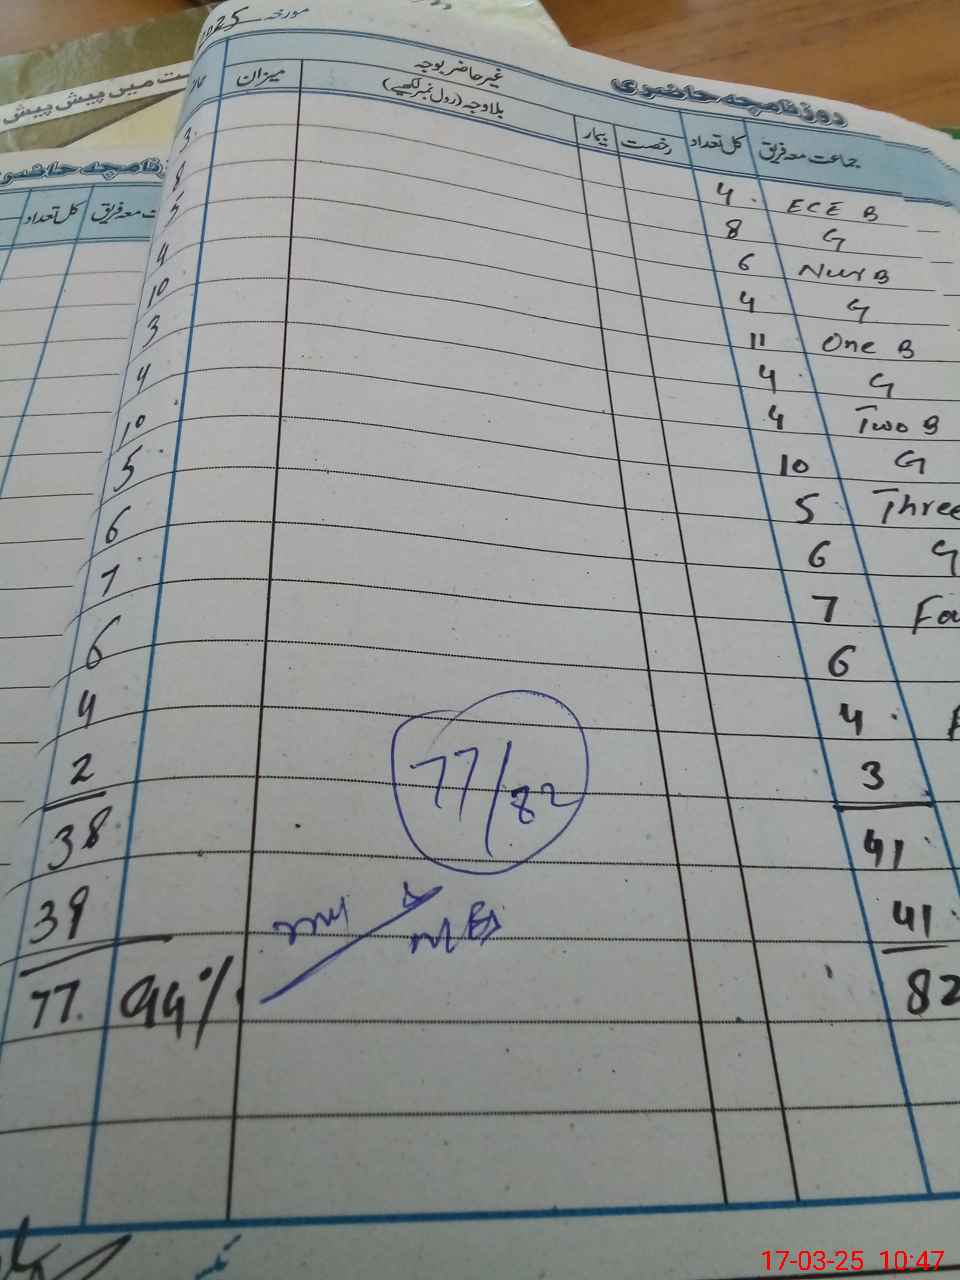 2025 مورخہ
ست میں پیش پیش
روزنامچہ حاضری
جماعت معہ فریق کل تعداد رخصت بیمار غیر حاضر بوجہ بلاوجہ (رول نمبر لکھیے) میزان
کل تعداد
ECE B 4 3
G 8 8
Nur B 6 5
G 4 4
One B 11 10
G 4 3
Two B 4 4
G 10 10
Three 5 5
G 6 6
7 7
6 6
4 4
3 2
41 38
41 39
82 77 94%
77/82
17-03-25 10:47